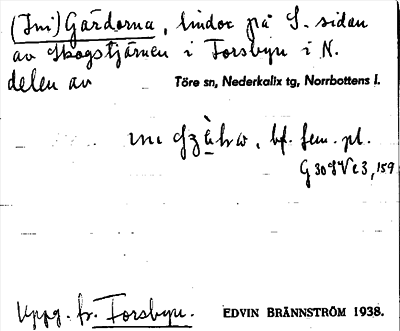 (Ini) Gärdorna, lindor på S. sidan
av Skogstjärnen i Forsbyn i N.
delen av Töre sn, Nederkalix tg, Norrbottens l.
bf. fem. pl.
G 30 S V c 3, 159
Uppg. fr. Forsbyn. EDVIN BRÄNNSTRÖM 1938.